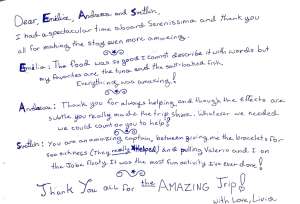 Dear, Emilie, Andreea and Smthin,
I had a spectacular time aboard Serenissima and thank you
all for making the stay even more amazing.
Emilie: The food was so good I cannot describe it with words but
my favorites are the tuna and the salt-baked fish.
Everything was amazing!
Andreea: Thank you for always helping and though the effects are
subtle you really made the trip shine. Whatever we needed
we could count on you to help!
You are an amazing captain, between giving me the bracelets for
sea sickness (They really Helped) and pulling Valerio and I on
the Jobe floaty It was the most fun activity I've ever done!
Thank You all for the AMAZING Trip!
with Love, Livia